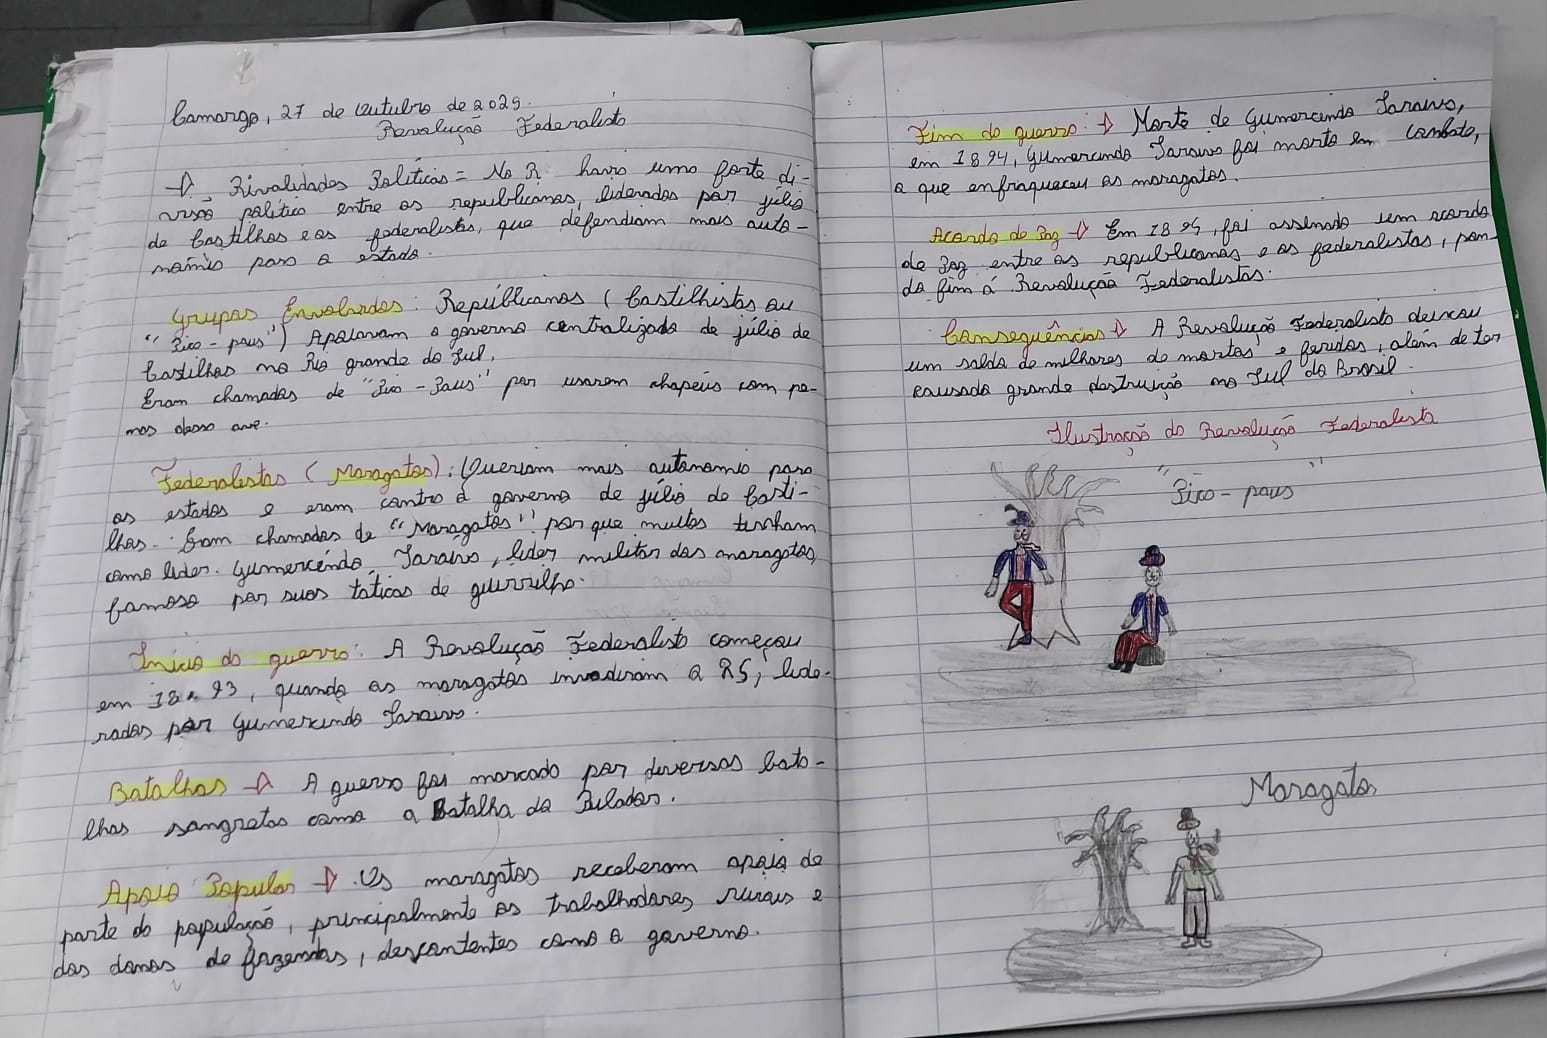 Camargo, 27 de outubro de 2025.
Revolução Federalista
→ Rivalidades Políticas = No R. havia uma forte di-
visão política entre os republicanos, liderados por júlio
de Castilhos e os federalistas, que defendiam mais auto-
nomia para o estado.
Grupos Envolvidos: Republicanos (Castilhistas ou
"Pica-paus") Apoiavam o governo centralizado de júlio de
Castilhos no Rio grande do Sul.
Eram chamados de "Pica-Paus" por usarem chapéus com pe-
nas dessa ave.
Federalistas (Maragatos): Queriam mais autonomia para
os estados e eram contra o governo de júlio de Casti-
lhos. Eram chamados de "Maragatos" por que muitos tinham
como líder. Gumercindo Saraiva, líder militar dos maragatos,
famoso por suas táticas de guerrilha.
Início da guerra: A Revolução Federalista começou
em 18.93, quando os maragatos invadiram o RS, lide-
rados por Gumercindo Saraiva.
Batalhas → A guerra foi marcada por diversas bata-
lhas sangretas como a Batalha de Pulador.
Apoio Popular → Os maragatos receberam apoio de
parte da população, principalmente os trabalhadores rurais e
dos donos de fazendas, descontentes como o governo.
Fim da guerra: → Morte de Gumercindo Saraiva,
em 1894, Gumercindo Saraiva foi morto em combate,
o que enfraqueceu os maragatos.
Acordo de Paz → Em 1895, foi assinado um acordo
de Paz entre os republicanos e os federalistas, pon-
do fim á Revolução Federalistas.
Consequências → A Revolução Federalista deixou
um saldo de milhares de mortos e feridos, além de ter
causado grande destruição no Sul do Brasil.
Ilustração da Revolução Federalista
"Pica-paus"
Maragatos